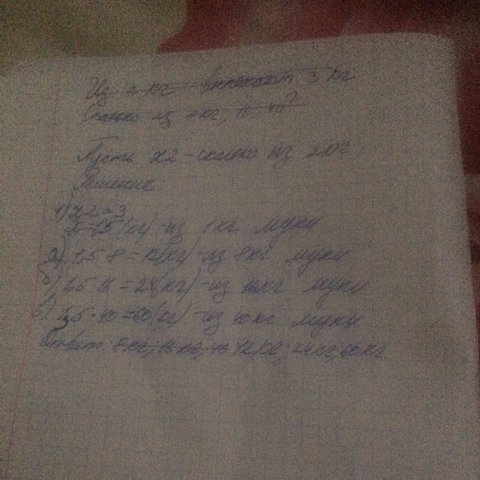 Из 2 кг выпекают 3 кг
Сколько из 8 кг, 16, 40?
Пусть x2 - сколько из 2 кг
Решение:
1) x2=3
x=1,5(кг) - из 1 кг муки
а) 1,5·8=12(кг) - из 8 кг муки
б) 1,5·16=24(кг) - из 16 кг муки
в) 1,5·40=60(кг) - из 40 кг муки
Ответ: 8 кг, 16 кг, 40 12 кг; 24 кг, 60 кг